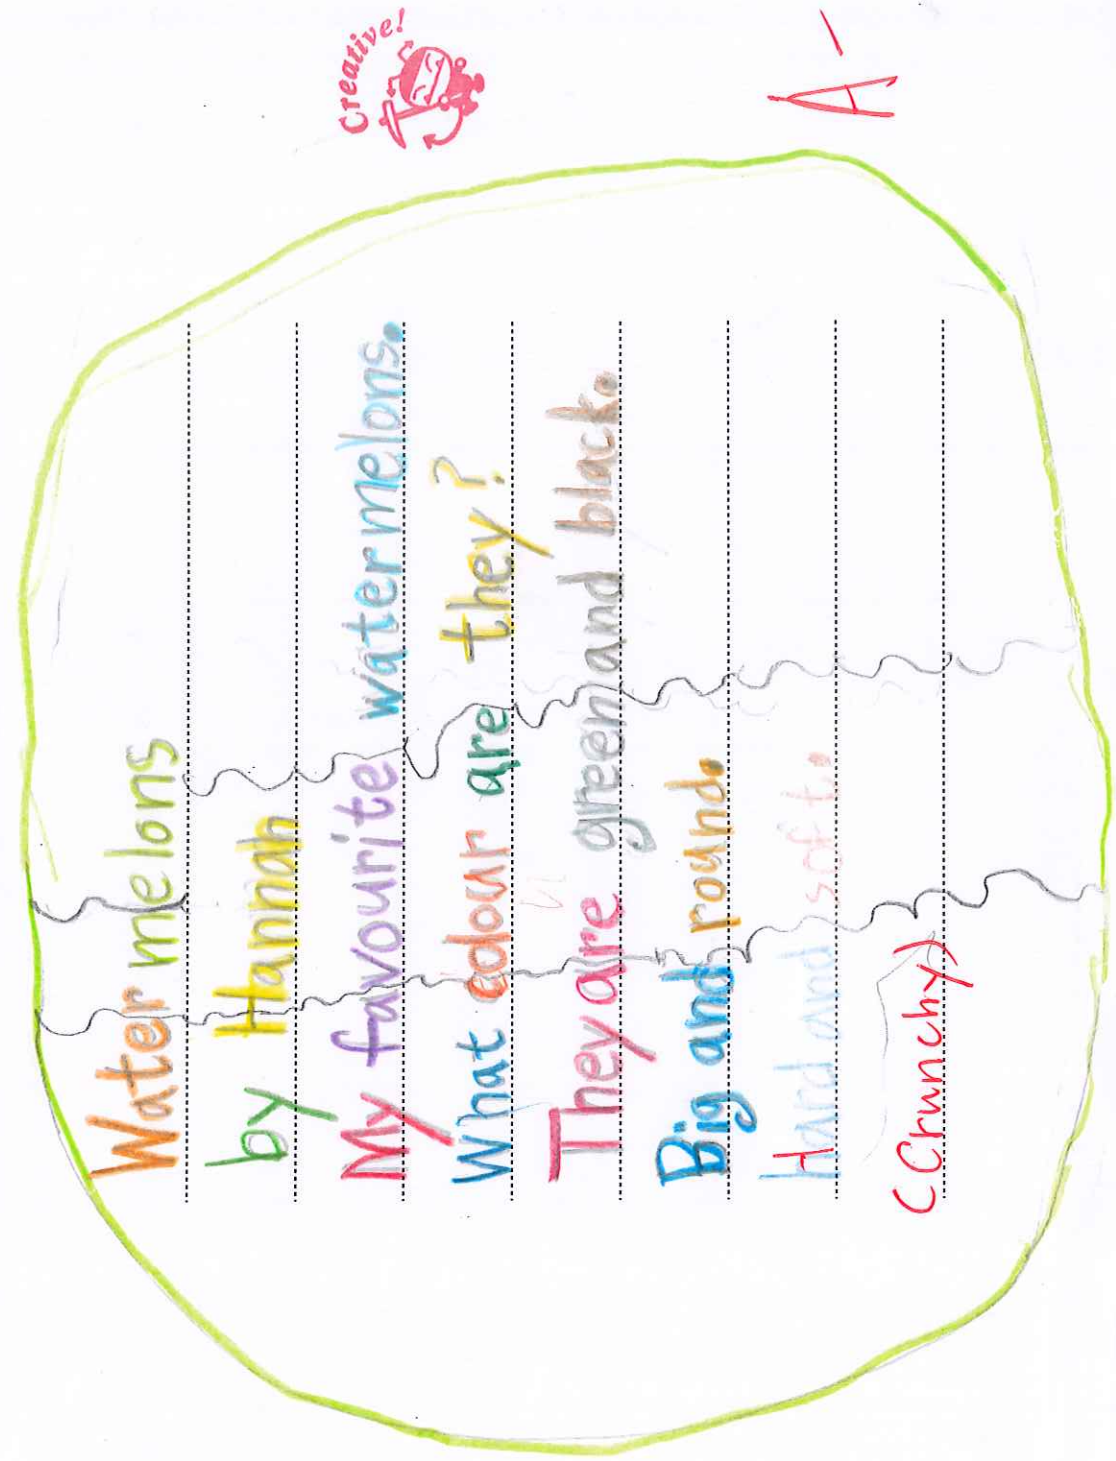 Creative!
A-
Watermelons
by Hannah
My favourite watermelons.
What colour are they?
They are green and black.
Big and round.
Hard and soft.
(Crunchy)